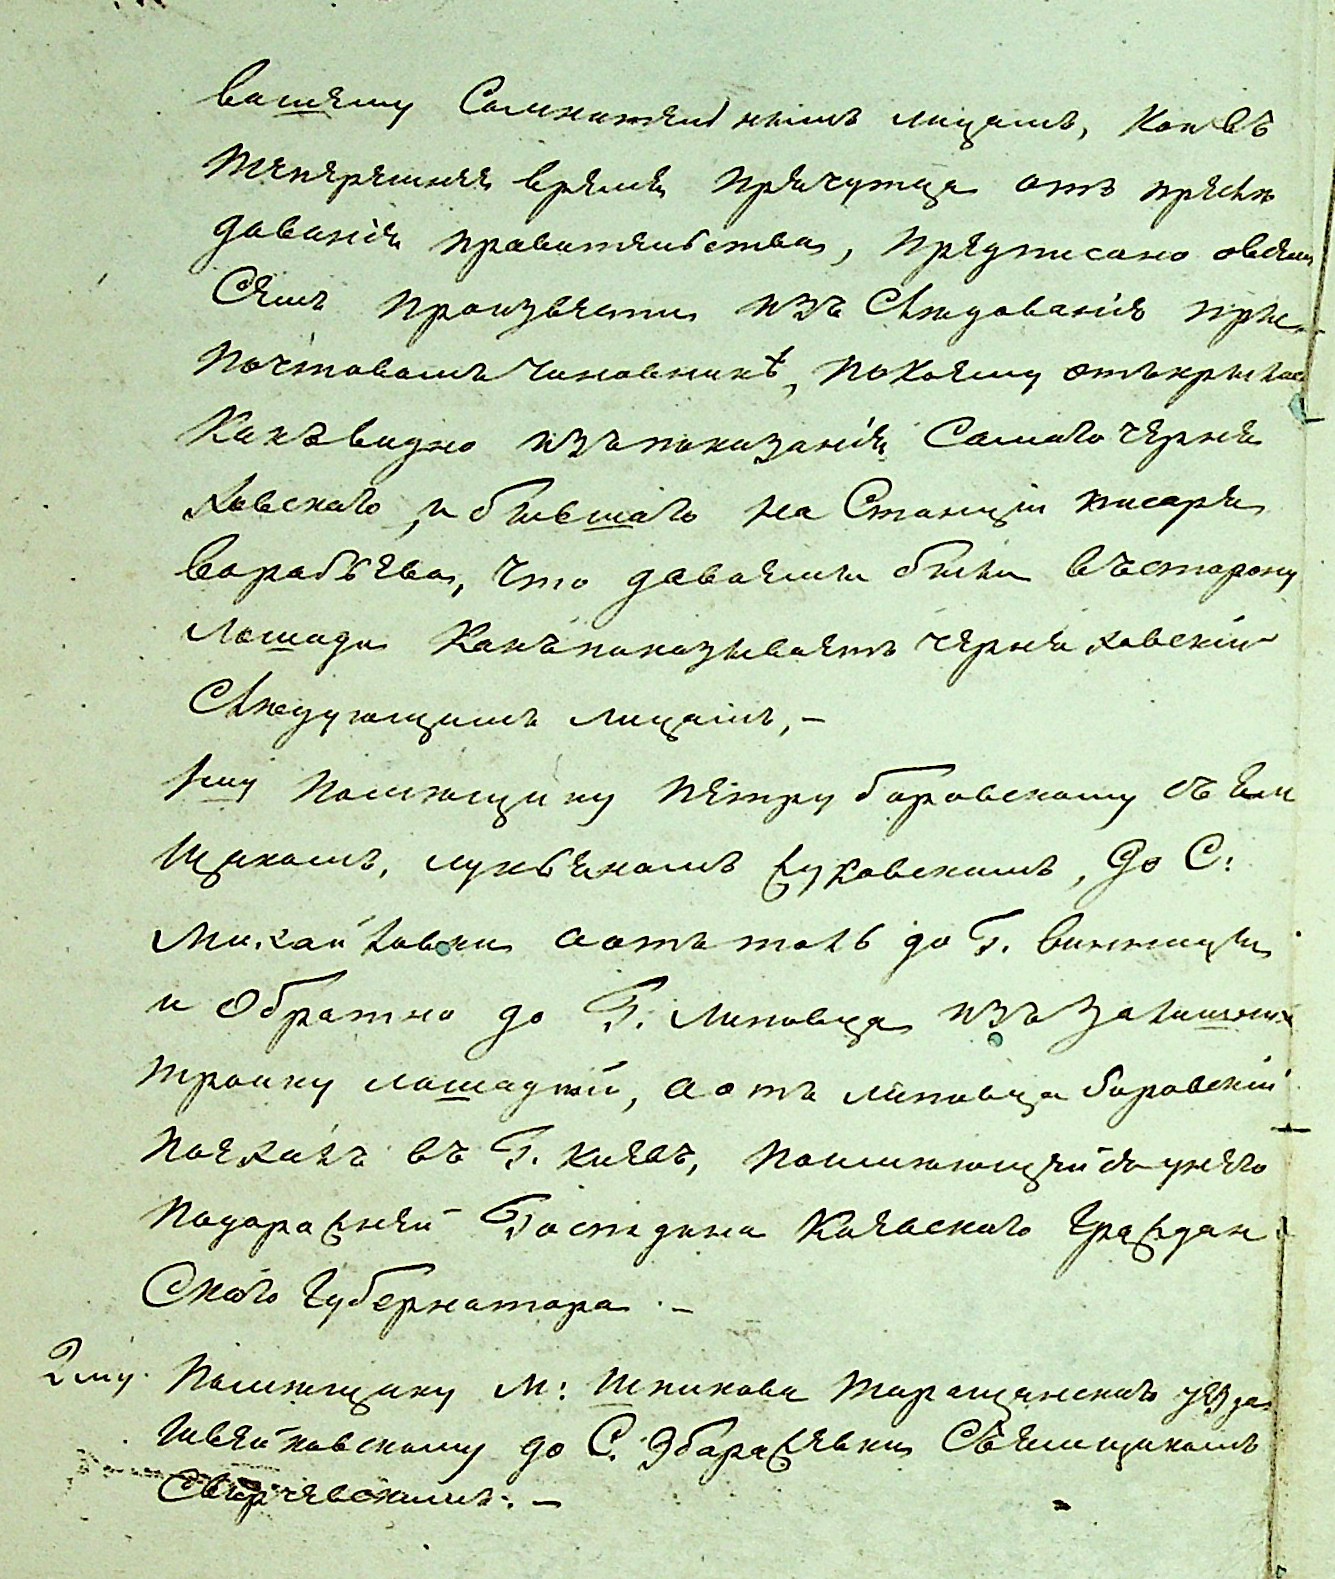 вашему Сомнительнымъ лицамъ, Кои въ
теперешнее время прячутца отъ преслѣ
дованія правительства, предписано овсемъ
Семъ произвести изъ Слѣдованіе при
почтовомъ чиновникѣ, поКоему отъкрылос
Какъ видно изъ показанія Самаго черне
ховскаго, и бывшаго на Станціи писаря
варабьева, что даваеми были въсторону
лошади Какъ показываетъ черняховскій
Слѣдующимъ лицамъ, –
1му Помѣщику Петру боровскому съ ем
щикомъ, лукьяномъ жуковскимъ, до С:
Михайловки аотътоль до Г. винницы
и Обратно до Г. Липовца изъ Залишн
тройку лошадей, аотъ липовца боровскій
поехалъ въ Г. киевъ, поимеющейся унего
подорожней Господина Киевскаго Граждан
Скаго Губернатора. –
2му. Помѣщику М: шпикова таращанскаго уезда
до С. Збаражевки Съемщикомъ
Свирчевскимъ. –